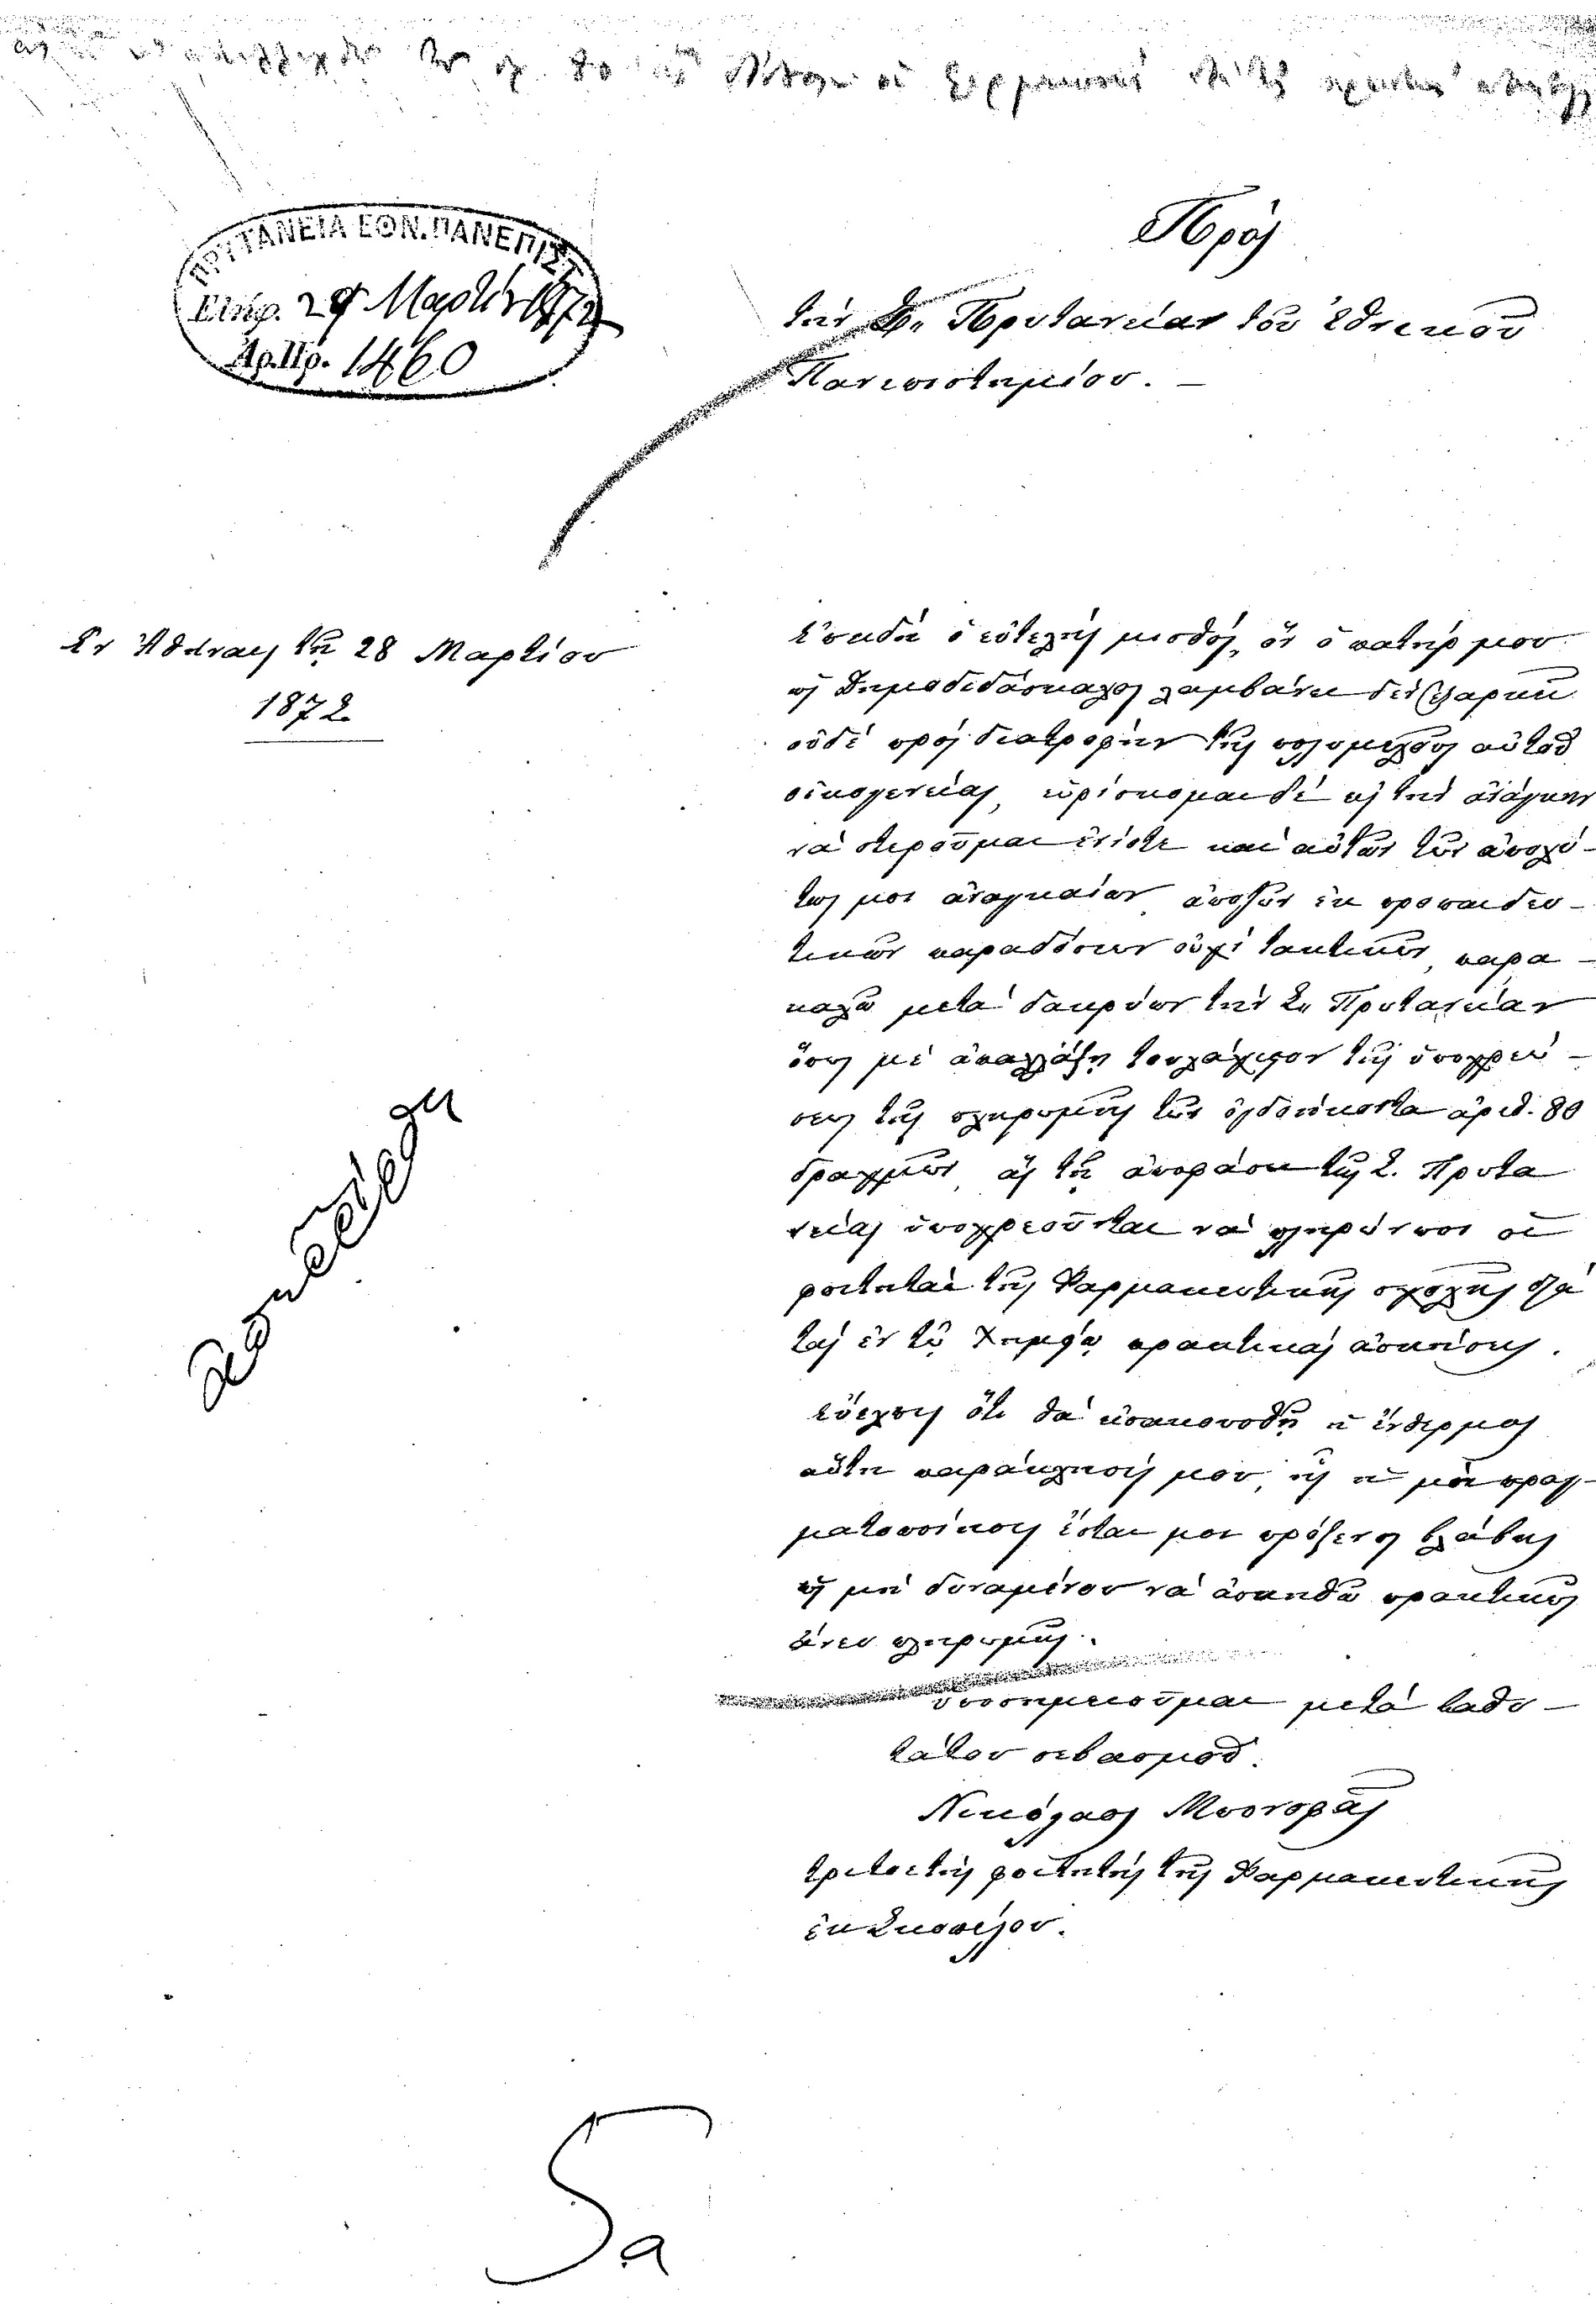 ΠΡΥΤΑΝΕΙΑ ΕΘΝ. ΠΑΝΕΠΙΣΤ
Εἰσήρ. 29 Μαρτίου 1872
Ἀρ.Πρ. 1460
Πρὸς
τὴν Σ. Πρυτανείαν τοῦ ἐθνικοῦ
Πανεπιστημίου. —
Ἐν Ἀθήναις τῇ 28 Μαρτίου
1872
Ἐπειδὴ ὁ εὐτελὴς μισθός, ὃν ὁ πατήρ μου
ὡς δημοδιδάσκαλος λαμβάνει δὲν ἐξαρκεῖ
οὐδὲ πρὸς διατροφὴν τῆς πολυμελοῦς αὐτοῦ
οἰκογενείας, εὑρίσκομαι δὲ εἰς τὴν ἀνάγκην
νὰ στεροῦμαι ἐνίοτε καὶ αὐτῶν τῶν ἀπολύ-
τως μοι ἀναγκαίων, ἀποζῶν ἐκ προπαιδευ-
τικῶν παραδόσεων οὐχὶ τακτικῶν, παρα-
καλῶ μετὰ δακρύων τὴν Σ. Πρυτανείαν
ὅπως μὲ ἀπαλλάξῃ τουλάχιστον τῆς ὑποχρεώ-
σεως τῆς πληρωμῆς τῶν ὀγδοήκοντα ἀριθ. 80
δραχμῶν, ἃς τῇ ἀποφάσει τῆς Σ. Πρυτα
νείας ὑποχρεοῦνται νὰ πληρώνωσι οἱ
φοιτηταὶ τῆς Φαρμακευτικῆς σχολῆς διὰ
τὰς ἐν τῷ Χημείῳ πρακτικὰς ἀσκήσεις.
Εὔελπις ὅτι θὰ εἰσακουσθῇ ἡ ἔνθερμος
αὕτη παράκλησίς μου, ἧς ἡ μὴ πραγ-
ματοποίησις ἔσται μοι πρόξενος βλάβης
ὡς μὴ δυναμένου νὰ ἀσκηθῶ πρακτικῶς
ἄνευ πληρωμῆς.
ὑποσημειοῦμαι μετὰ βαθυ-
τάτου σεβασμοῦ.
Νικόλαος
τριτοετὴς φοιτητὴς τῆς Φαρμακευτικῆς
ἐκ Σκοπέλου.
5α